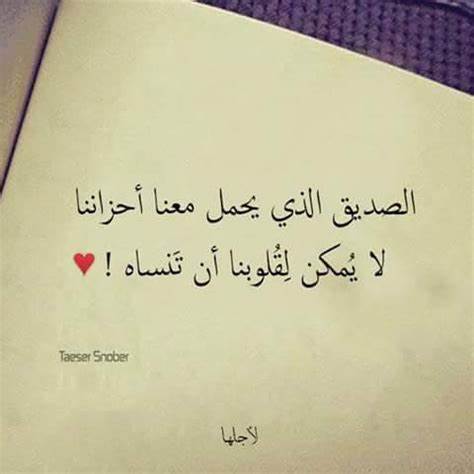 الصديق الذي يحمل معنا أحزاننا
لا يُمكن لِقُلوبنا أن تَنساه ! ♥
Taeser Snober
لآجلها